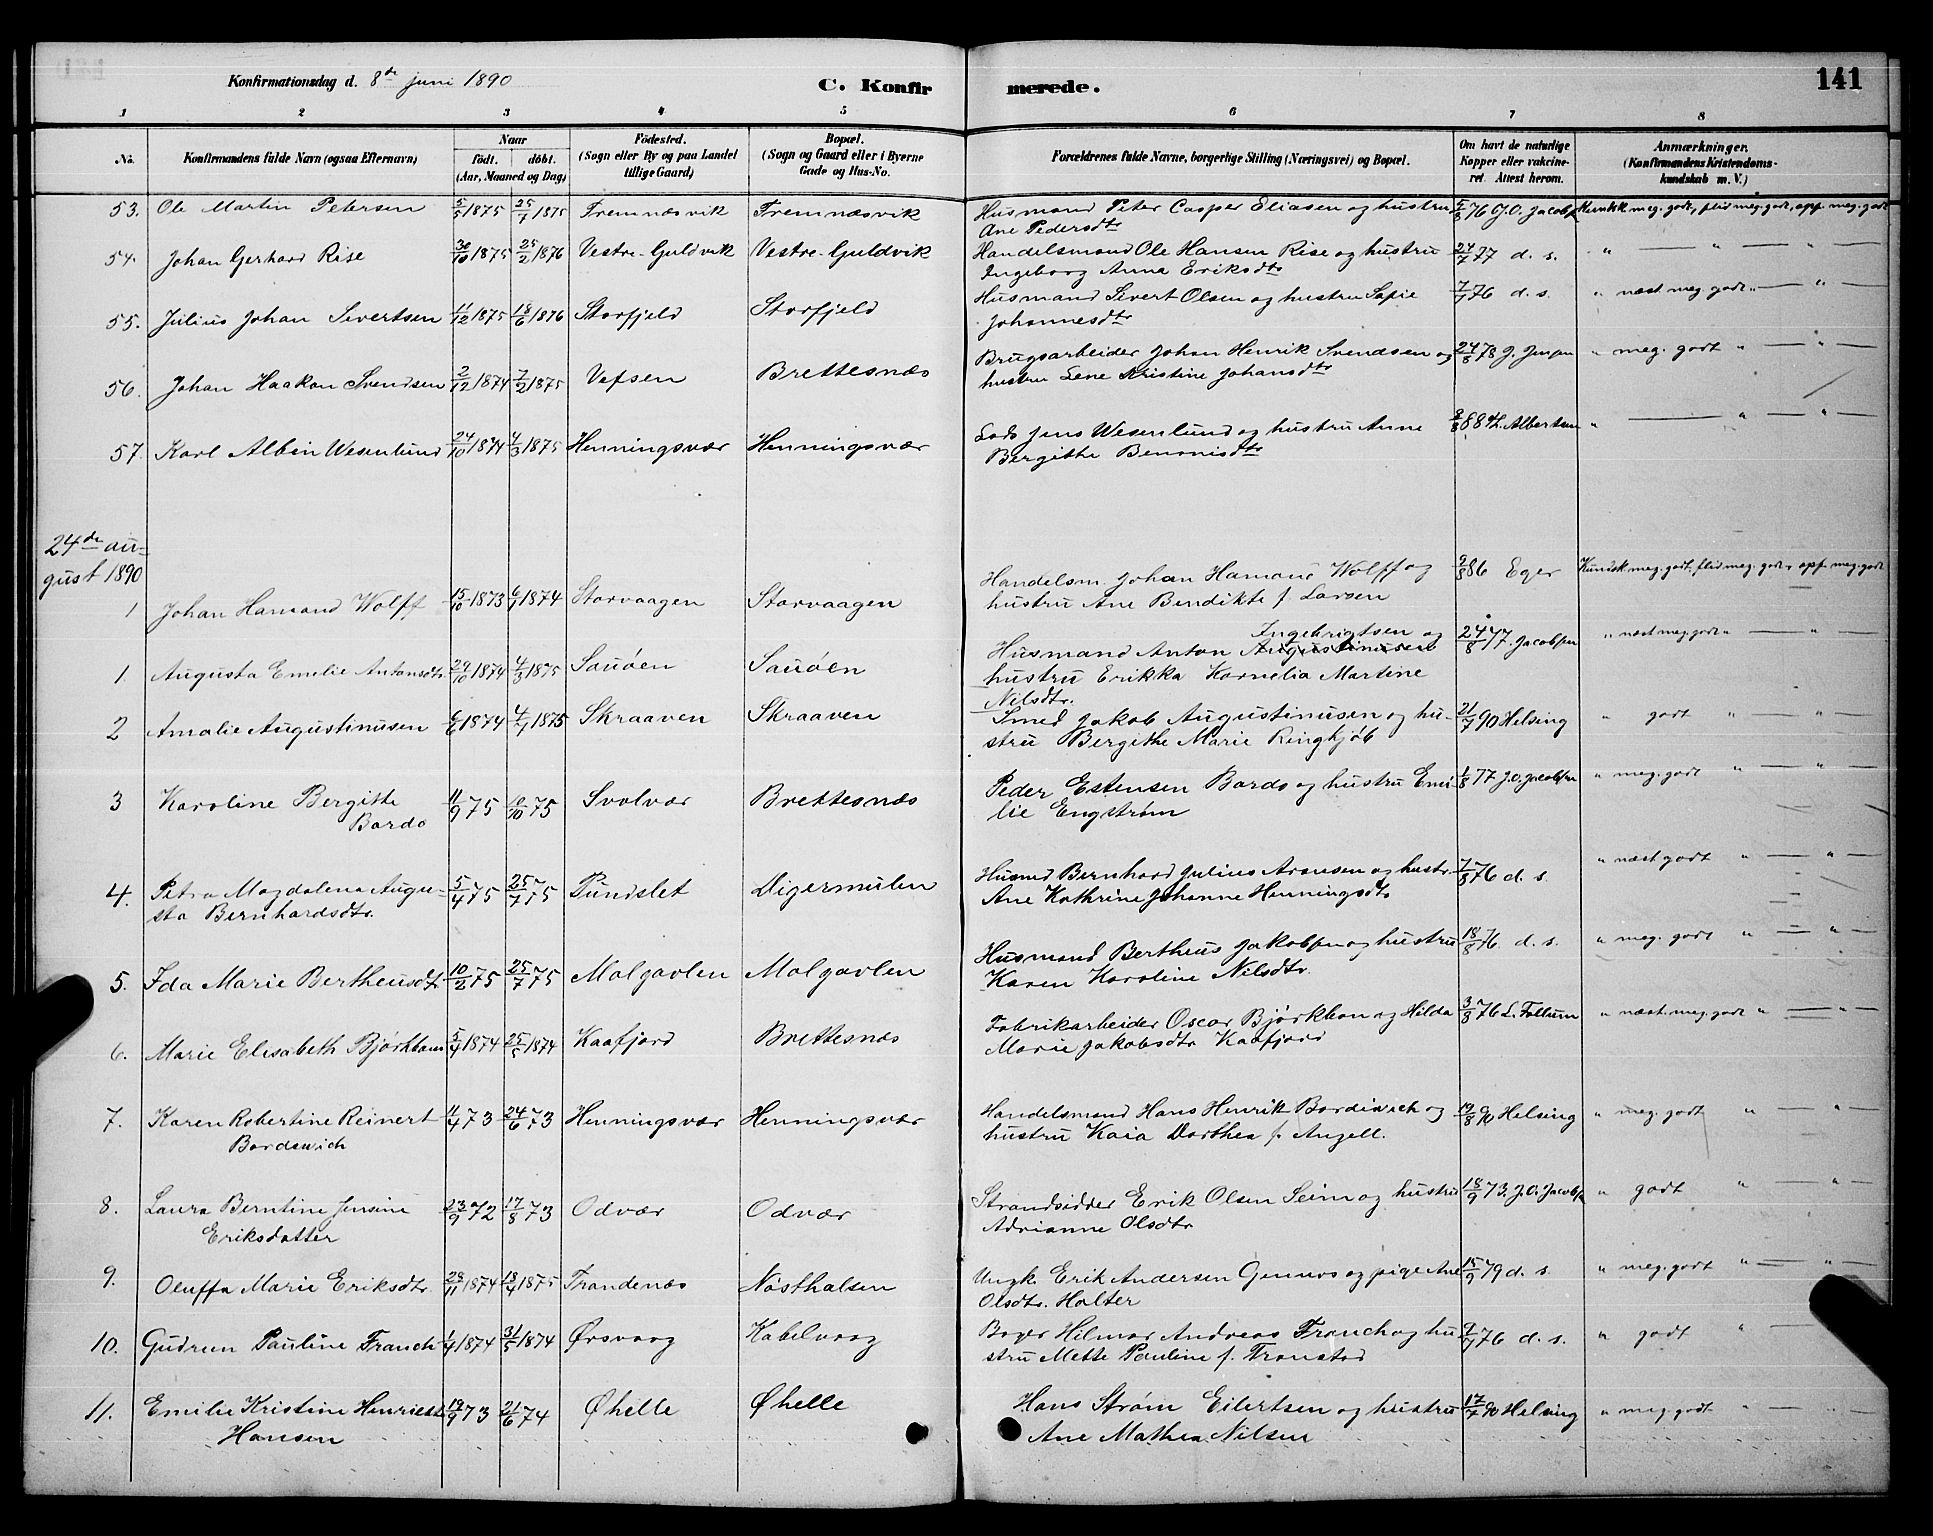 Konfirmationsdag d. 8de juni 1890
C. Konfirmerede.
141
1 2 3 4 5 6 7 8
No.
Konfirmandens fulde Navn (ogsaa Efternavn)
Naar
födt. döbt.
(Aar, Maaned og Dag)
Födested.
(Sogn eller By og paa Landet
tillige Gaard)
Bopæl.
(Sogn og Gaard eller i Byerne
Gade og Hus-No.
Forældrenes fulde Navne, borgerlige Stilling (Næringsvei) og Bopæl.
Om havt de naturlige
Kopper eller vakcine-
ret. Attest herom.
Anmærkninger.
(Konfirmandens Kristendoms-
kundskab m. V.)
53. Ole Martin Petersen 5/5 1875 25/7 1875 Fremnæsvik Fremnæsvik Husmand Peter Casper Eliasen og hustru 76 J.O. Jacobsn Kundsk. meg. godt, flid meg. godt, opf. meg. godt
Ane Pedersdtr
54. Johan Gerhard Rise 30/10 1875 25/2 1876 Vestre-Guldvik Vestre-Guldvik Handelsmand Ole Hansen Rise og hustru 24/7 77 d. s. " — " — " —
Ingeborg Anna Eriksdtr
55. Julius Johan Sivertsen 11/12 1875 18/6 1876 Storfjeld Storfjeld Husmand Sivert Olsen og hustru Sofie 7/7 76 d. s. " næst meg. godt " — " —
Johannesdtr
56. Johan Haakon Svendsen 2/12 1874 7/2 1875 Vefsen Brettesnæs Brugsarbeider Johan Henrik Svendsen og 24/8 78 J. Jensen " meg. godt " — " —
hustru Lene Kristine Johansdtr
57. Karl Albin Wesenlund 24/10 1874 4/3 1875 Henningsvær Henningsvær Lods Jens Wesenlund og hustru Anne 88 L. Albertsen " — " — " —
Bergithe Benonisdtr
24de au-
gust 1890
1 Johan Hamond Wolff 15/10 1873 6/7 1874 Storvaagen Storvaagen Handelsm. Johan Hamond Wolff og 9/8 86 Eger Kundsk. meg. godt, flid meg. godt, opf. meg. godt
hustru Ane Bendikte f. Larsen
1. Augusta Emelie Antonsdtr. 29/10 1874 4/3 1875 Sauöen Sauöen Husmand Anton Augustinusen Ingebrigtsen og 24/8 77. Jacobsen " næst meg. godt " — " —
hustru Erikka Kornelia Martine
Nilsdtr.
2 Amalie Augustinusen 6/6 1874 4/7 1875 Skraaven Skraaven Smed Jakob Augustinusen og hu- 21/7 90 Helsing " godt " — " —
stru Bergithe Marie Ringkjøb
3 Karoline Bergitte 11/9 75 10/10 75 Svolvær Brettesnæs Peder Estensen Bardo og hustru Emi- 1/8 77 J.O. Jacobsen " meg. godt " — " —
Bardo lie Engstrøm
4. Petra Magdalena Augu- 5/4 75 25/7 75 Pundslet Digermulen Husmd Bernhard Julius Aronsen og hustr. 7/8 76 d. s. " næst godt " — " —
sta Bernhardsdtr. Ane Kathrine Johanne Henningsdtr
5. Ida Marie Bertheusdtr 10/2 75 25/7 75 Molgavlen Molgavlen Husmand Bertheus Jakobsen og hustru 18/8 76. d. s. " meg. godt " — " —
Karen Karoline Nilsdtr.
6. Marie Elisabeth Bjørkbom 5/4 1874 25/5 1874 Kaafjord Brettesnæs Fabrikarbeider Oscar Bjørkbom og Hilda 3/8 76 L. Follum " næst. meg. godt " — " —
Marie Jakobsdtr Kaafjord
7. Karen Robertine Reinert 11/4 73 24/6 73 Henningsvær Henningsvær Handelsmand Hans Henrik Bordewich og 19/8 90 Helsing " meg. godt " — " —
Bordewich hustru Kaia Dorthea f. Angell.
8. Laura Berntine Jensine 23/9 72 17/8 73 Odvær Odvær Strandsidder Erik Olsen Seim og hustru 18/9 73. J.O. Jacobsn " godt " — " —
Eriksdatter Adrianne Olsdtr
9. Oluffa Marie Eriksdtr. 28/11 1874 18/4 1875 Trandenæs Nøsthalsen Ungk. Erik Andersen og pige Ane 15/9 79 d. s. " meg. godt " — " —
Olsdtr. Halter
10. Gudrun Pauline Franch 1/4 1874 31/5 1874 Ørsvaag Kabelvaag Bager Hilmar Andreas Franch og hu 9/9 76 d. s. " godt " —
stru Mette Pauline f. Tronstad
11. Emilie Kristine Henriette 19/9 73 21/6 74 Øhelle Øhelle Hans Strøm Eilertsen og hustru 17/7 90 Helsing " meg. godt " —
Hansen Ane Mathea Nilsen